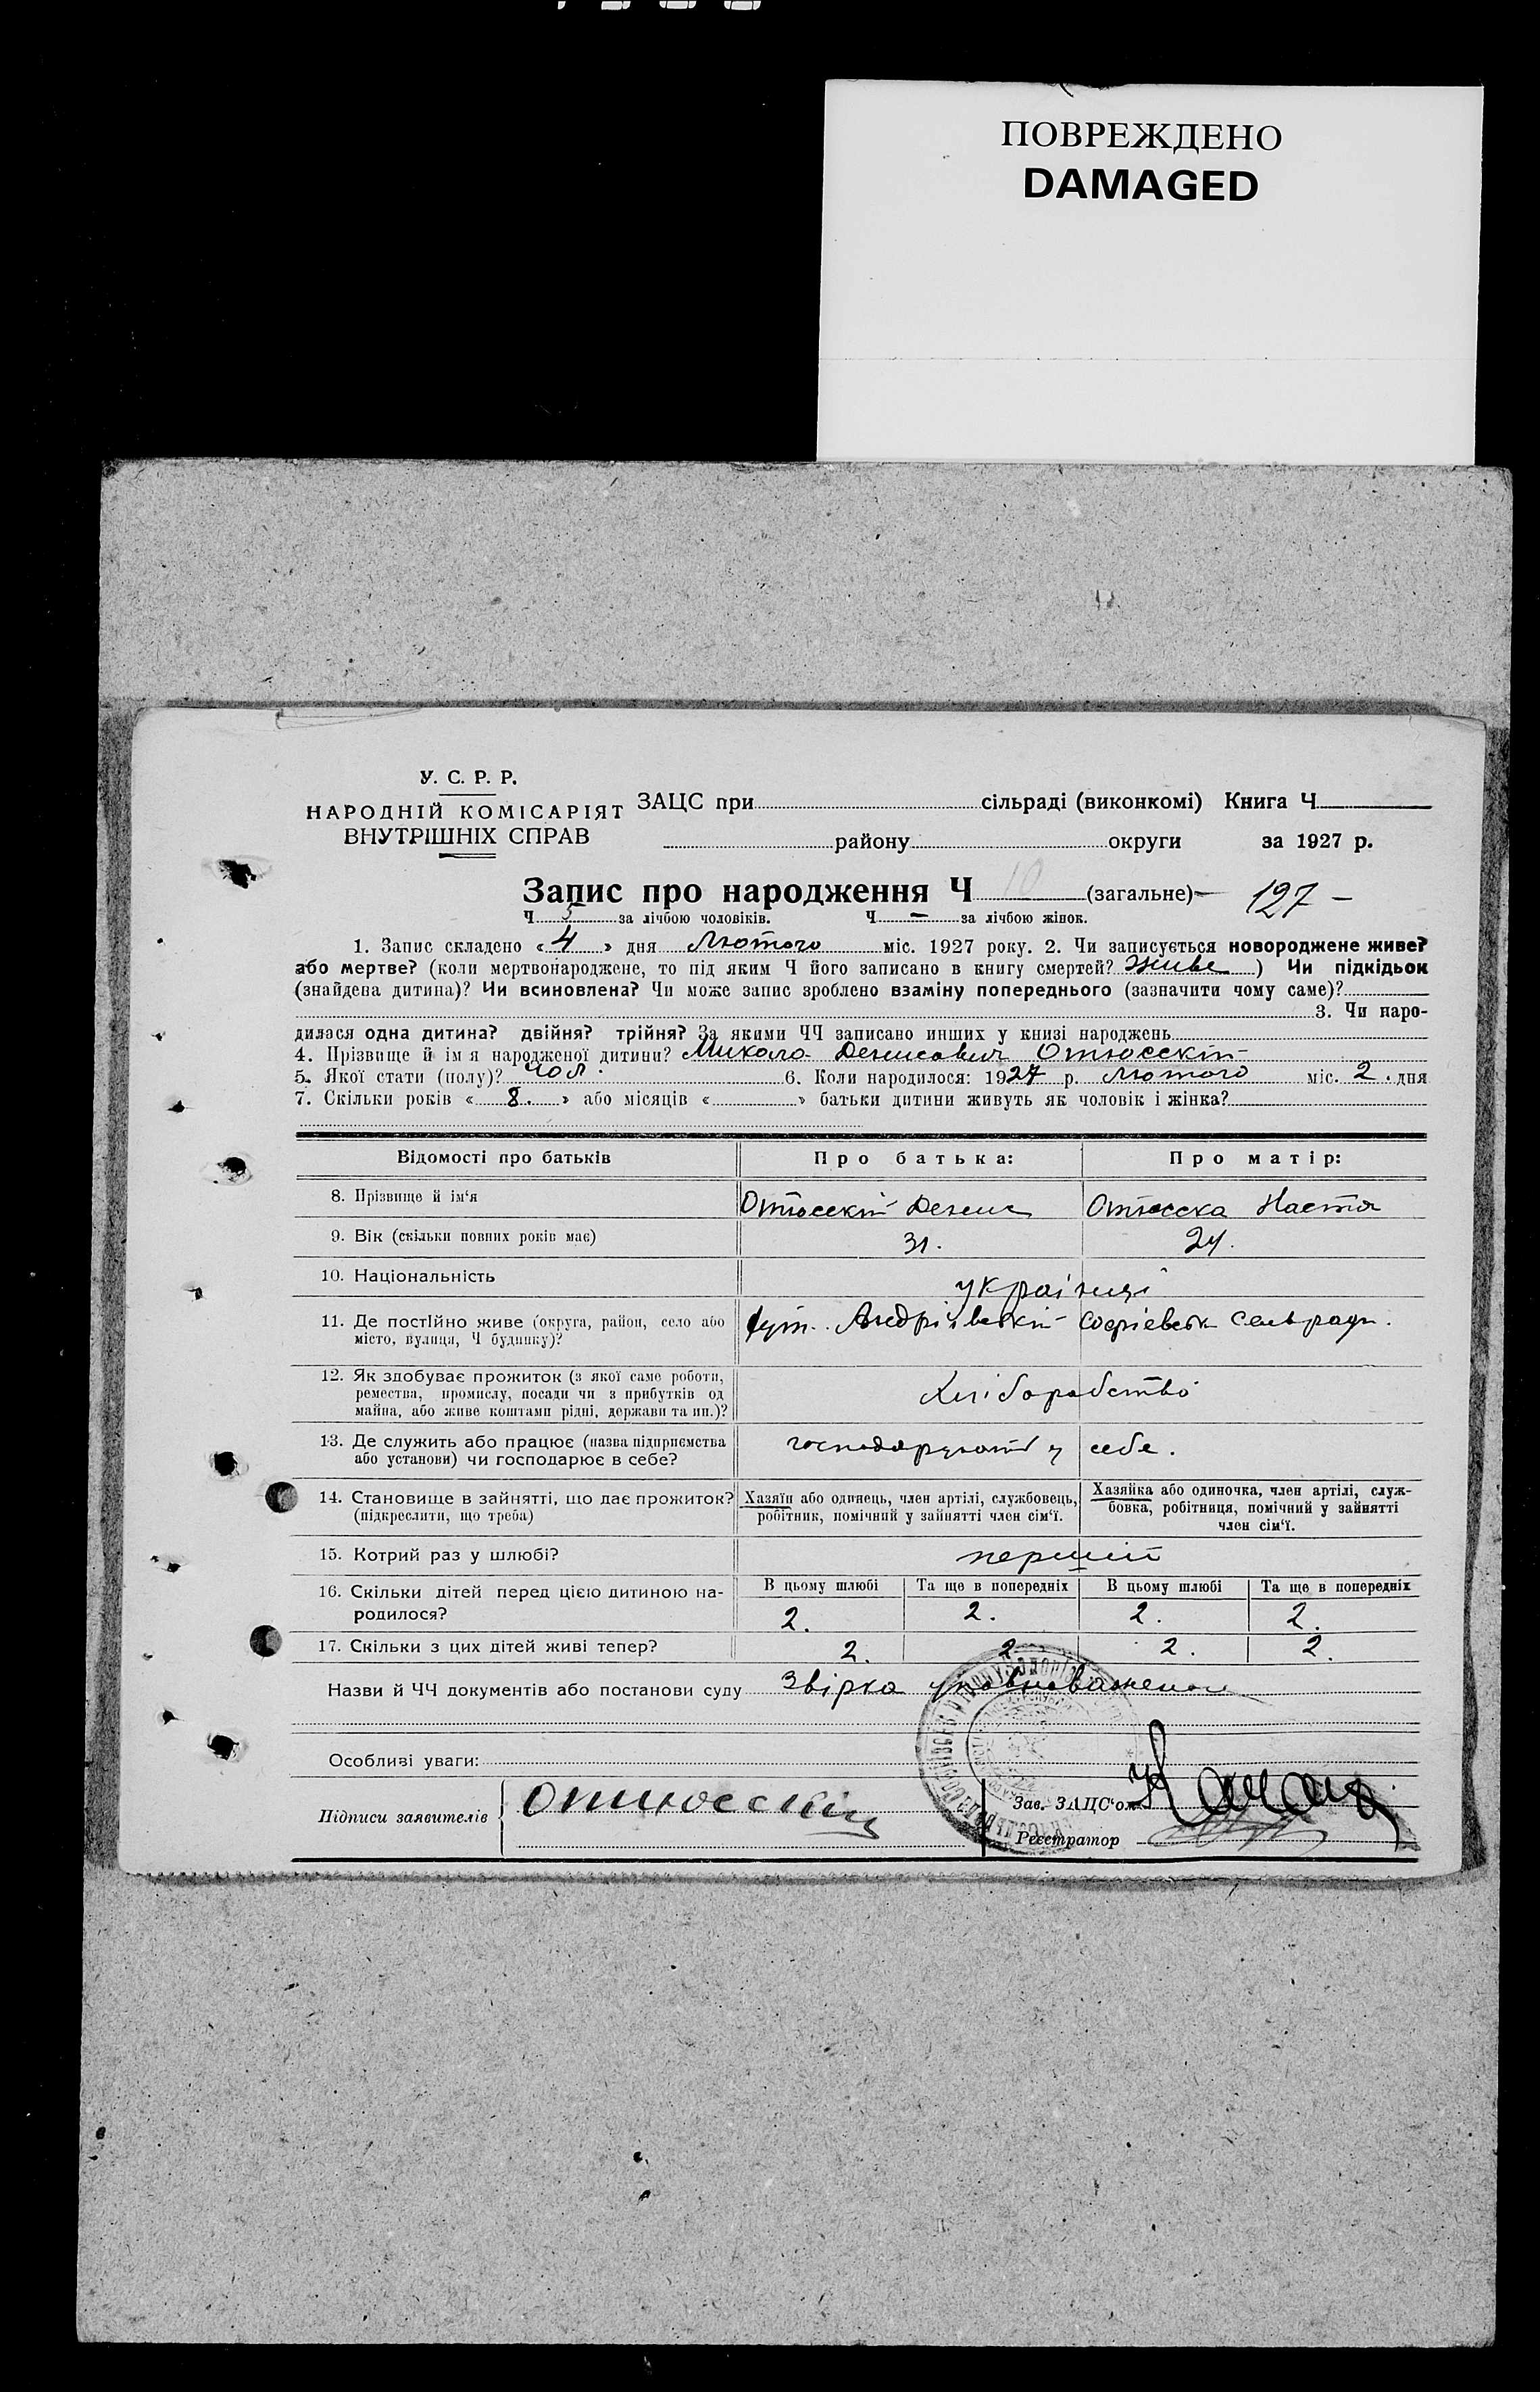 ПОВРЕЖДЕНО
DAMAGED
У. С. Р. Р.
НАРОДНІЙ КОМІСАРІЯТ
ВНУТРІШНІХ СПРАВ
ЗАЦС при сільраді (виконкомі) Книга Ч
району округи за 1927 р.
Запис про народження Ч 10 (загальне) 127 –
Ч 5 за лічбою чоловіків. Ч – за лічбою жінок.
1. Запис складено « 4 » дня Лютого міс. 1927 року. 2. Чи записується новороджене живе?
або мертве? (коли мертвонароджене, то під яким Ч його записано в книгу смертей? живе ) Чи підкідьок
(знайдена дитина)? Чи всиновлена? Чи може запис зроблено взаміну попереднього (зазначити чому саме)?
3. Чи наро-
дилася одна дитина? двійня? трійня? За якими ЧЧ записано инших у книзі народжень
4. Прізвище й ім я народженої дитини? Микола Денисович Отюсскій
5. Якої стати (полу)? Чол. 6. Коли народилося: 1927 р. Лютого міс. 2. дня
7. Скільки років « 8. » або місяців « » батьки дитини живуть як чоловік і жінка?
Відомості про батьків Про батька: Про матір:
8. Прізвище й ім‘я Отюсскій Денис Отюсска Настя
9. Вік (скільки повних років має) 31. 24.
10. Національність українці
11. Де постійно живе (округа, район, село або
місто, вулиця, Ч будинку)? хут. Андріївскій Софієвськ сельради.
12. Як здобуває прожиток (з якої саме роботи,
ремества, промислу, посади чи з прибутків од
майна, або живе коштами рідні, держави та ин.)? Хліборобство
13. Де служить або працює (назва підприємства
або установи) чи господарює в себе? господарують у себе.
14. Становище в зайнятті, що дає прожиток?
(підкреслити, що треба)
Хазяїн або одинець, член артілі, службовець,
робітник, помічний у зайнятті член сім‘ї.
Хазяйка або одиночка, член артілі, служ-
бовка, робітниця, помічний у зайнятті
член сім‘ї.
15. Котрий раз у шлюбі? перший
В цьому шлюбі Та ще в попередніх В цьому шлюбі Та ще в попередніх
16. Скільки дітей перед цією дитиною на-
родилося? 2. 2. 2. 2.
17. Скільки з цих дітей живі тепер? 2. 2. 2. 2.
Назви й ЧЧ документів або постанови суду Звірка
Особливі уваги:
Підписи заявителів Отюсскій
Зав. ЗАЦС‘ом
Реєстратор